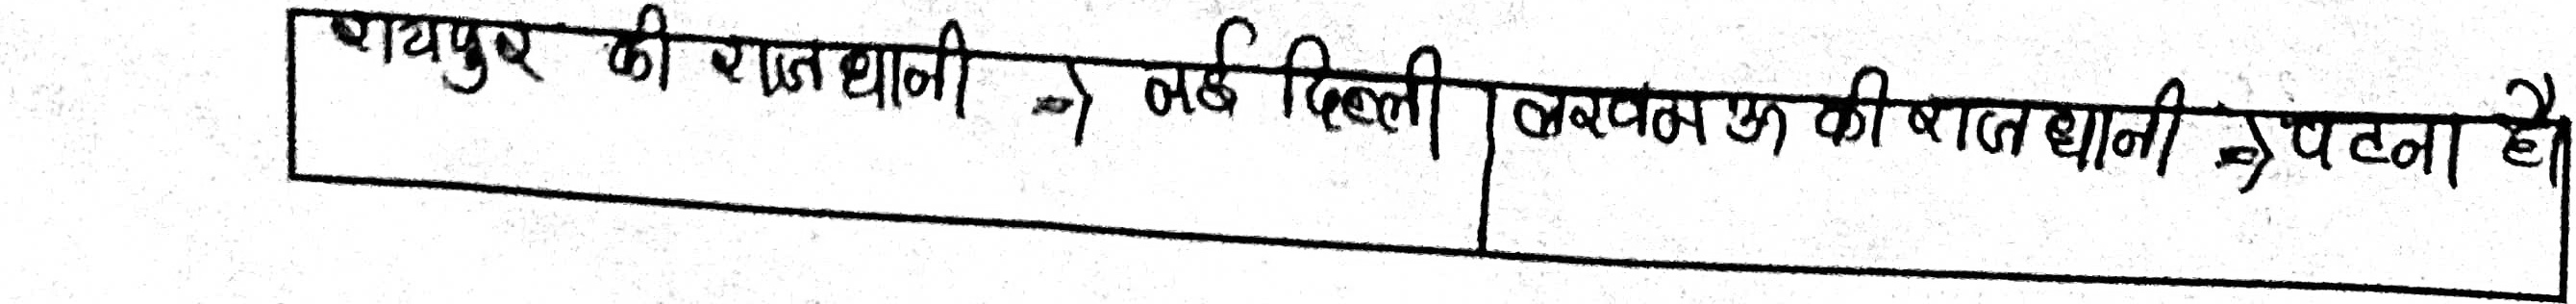 रायपुर की राजधानी → नई दिल्ली | लखनऊ की राजधानी → पटना है